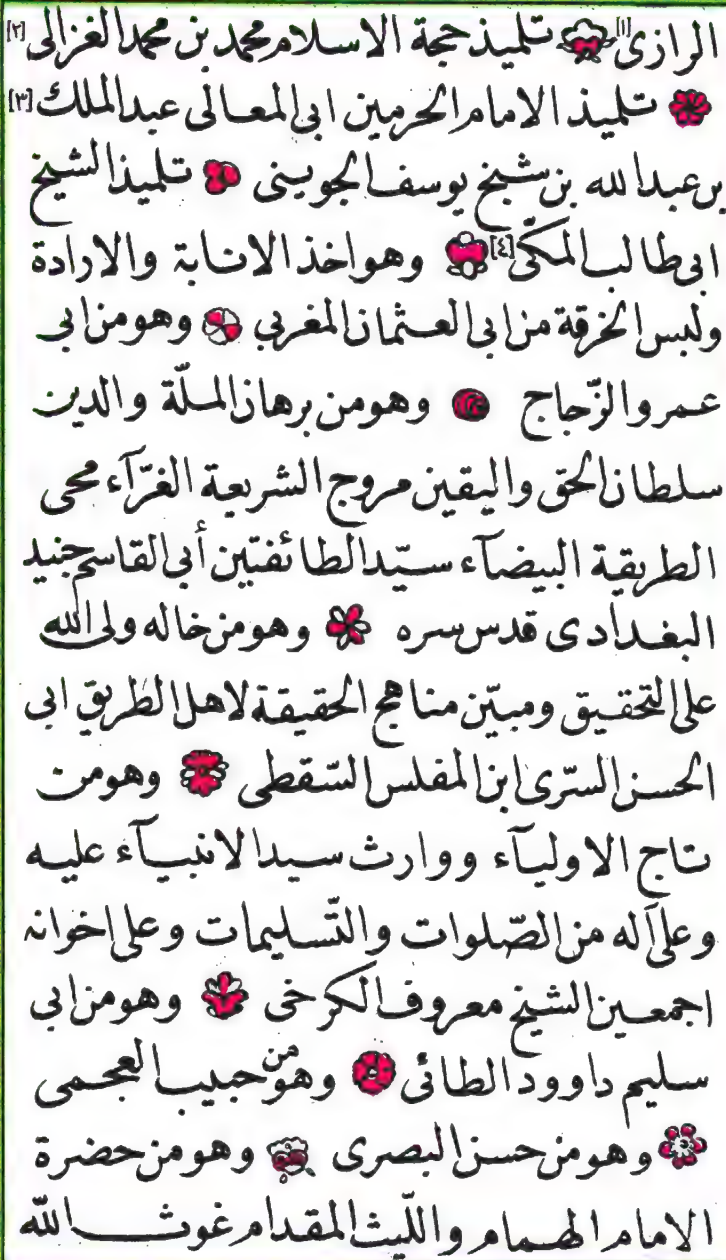 الرازى[١] تلميذ حجة الاسلام محمد بن محمد الغزالى[٢]
تلميذ الامام الحرمين ابى المعالى عبدالملك[٣]
بن عبدالله بن شيخ يوسف الجوينى تلميذ الشيخ
ابى طالب المكّى[٤] وهو اخذ الانابة والارادة
ولبس الخرقة من ابى العثمان المغربى وهو من ابى
عمرو الزّجاج وهو من برهان الملّة والدين
سلطان الحق واليقين مروج الشريعة الغرّآء محى
الطريقة البيضآء سيّد الطائفتين أبى القاسم جنيد
البغدادى قدس سره وهو من خاله ولى الله
على التحقيق ومبيّن مناهج الحقيقة لاهل الطريق ابى
الحسن السّرى ابن المفلس السّقطى وهو من
تاج الاوليآء ووارث سيد الانبيآء عليه
وعلى آله من الصّلوات والتّسليمات وعلى اخوانه
اجمعين الشيخ معروف الكرخى وهو من ابى
سليم داوود الطائى وهو من حبيب العجمى
وهو من حسن البصرى وهو من حضرة
الامام الهمام والليث المقدام غوث الله